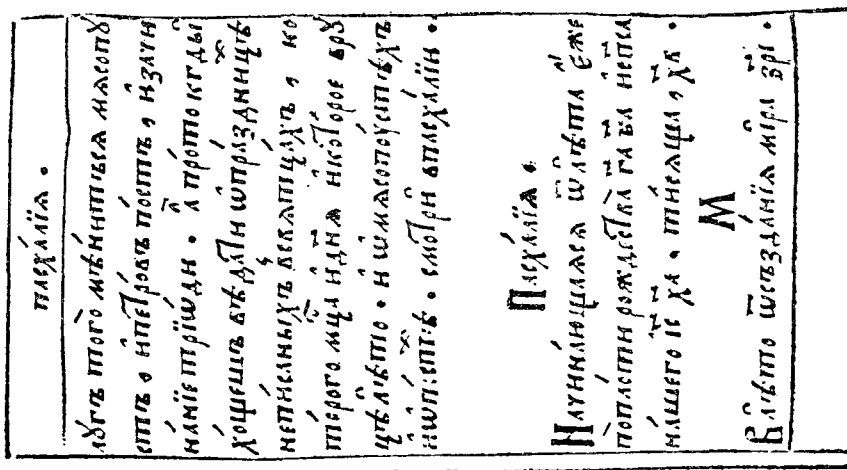 пасха́лїѧ .
лꙋгъ того̀ мѣни́тъсѧ мѧсопꙋ́
стъ , и̑пе́тⷬовъ по́стъ , и҆зачи
на́нїе трїѡ́ди . а҆ про́то кгды̀
хо́щешъ вѣ́дати ѡ҆праздницѣⷯ
неписа́ныхъ всвѧ́тцахъ , ко
то́рого мⷭ҇ца и҆днѧ̀ нѣкото́рое врꙋ
цѣлѣ́то . и҆ ѡ҆мѧсопꙋ́стѣхъ
. смотрѝ впасха́лїи .
Пасха́лїѧ .
Начина́ющаѧсѧ ѿлѣ́та є҆́же
попло́ти рождества̀ га҃ бга҃ и҆спса
на́шего і҆с х҃а . ти́сѧща , х҃к .
М
Влѣ́то ѿсъзда́нїѧ ми́ра ҂зр҃і .